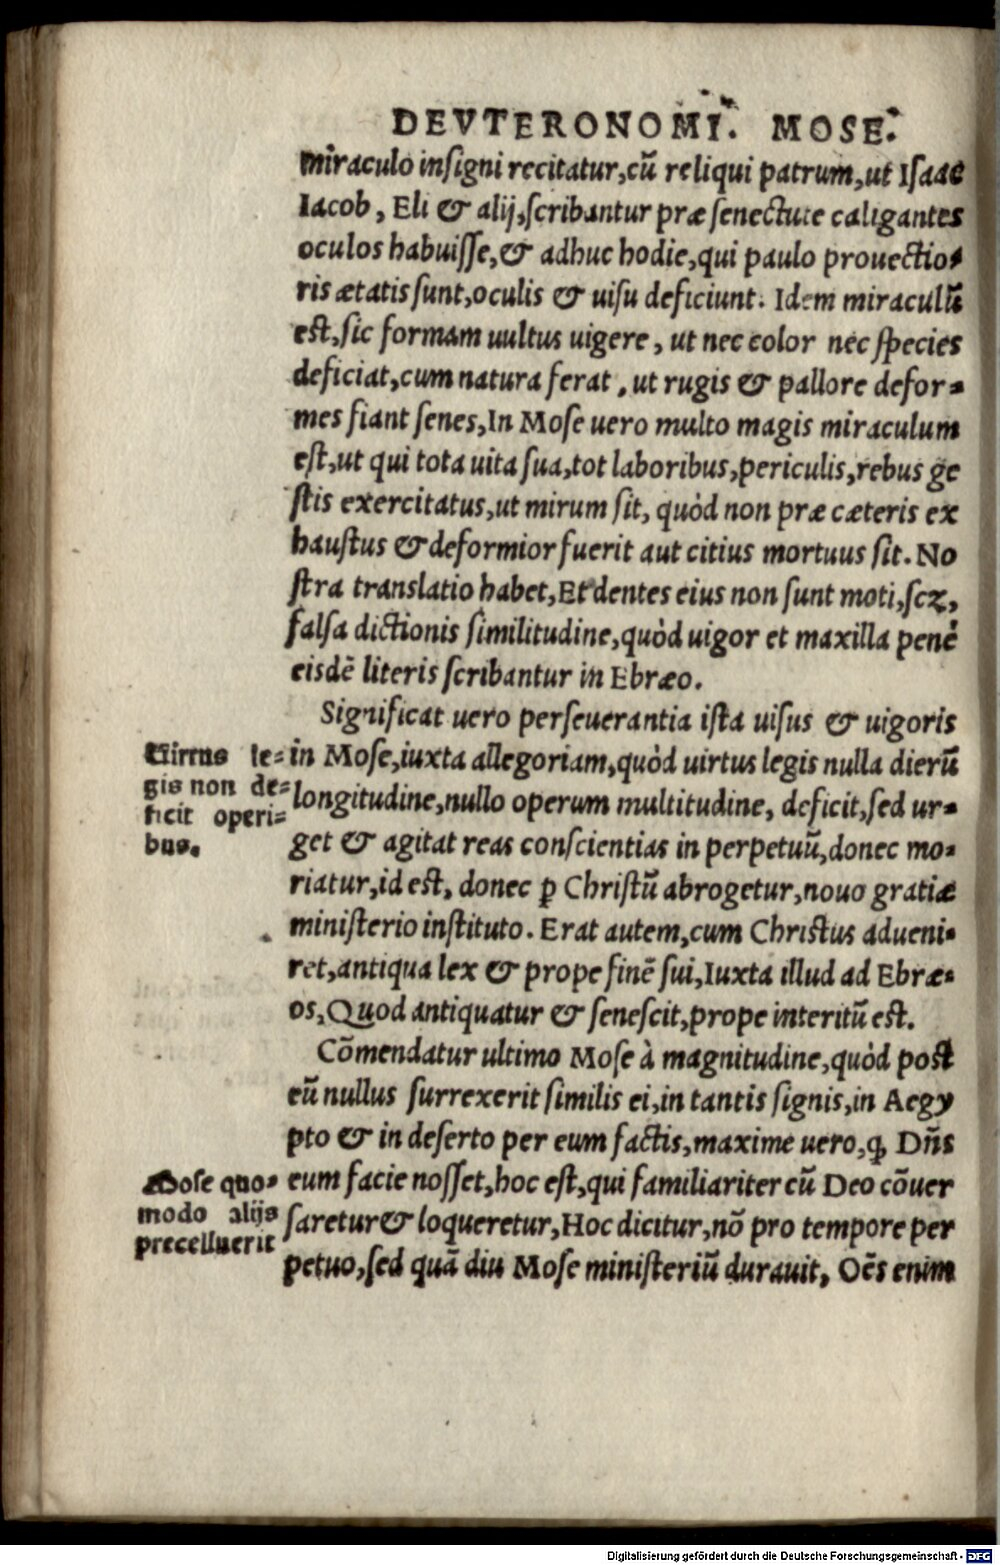 DEVTERONOMI. MOSE.
miraculo insigni recitatur, cũ reliqui patrum, ut Isaac
Iacob, Eli & alij, scribantur præ senectute caligantes
oculos habuisse, & adhuc hodie, qui paulo prouectio-
ris ætatis sunt, oculis & uisu deficiunt. Idem miraculũ
est, sic formam uultus uigere, ut nec color nec species
deficiat, cum natura ferat, ut rugis & pallore defor-
mes fiant senes, In Mose uero multo magis miraculum
est, ut qui tota uita sua, tot laboribus, periculis, rebus ge
stis exercitatus, ut mirum sit, quòd non præ cæteris ex
haustus & deformior fuerit aut citius mortuus sit. No
stra translatio habet, Et dentes eius non sunt moti, scz,
falsa dictionis similitudine, quòd uigor et maxilla penè
eisdẽ literis scribantur in Ebræo.
Significat uero perseuerantia ista uisus & uigoris
in Mose, iuxta allegoriam, quòd uirtus legis nulla dierũ
longitudine, nullo operum multitudine, deficit, sed ur-
get & agitat reas conscientias in perpetuũ, donec mo-
riatur, id est, donec ꝑ Christũ abrogetur, nouo gratiæ
ministerio instituto. Erat autem, cum Christus adueni-
ret, antiqua lex & prope finẽ sui, Iuxta illud ad Ebræ-
os, Quod antiquatur & senescit, prope interitũ est.
Cõmendatur ultimo Mose à magnitudine, quòd post
eũ nullus surrexerit similis ei, in tantis signis, in Aegy
pto & in deserto per eum factis, maxime uero, ꝙ Dñs
eum facie nosset, hoc est, qui familiariter cũ Deo cõuer
saretur & loqueretur, Hoc dicitur, nõ pro tempore per
petuo, sed quã diu Mose ministeriũ durauit, Oẽs enim
Uirtus le-
gis non de-
ficit operi-
bus.
Mose quo-
modo alijs
precelluerit
Digitalisierung gefördert durch die Deutsche Forschungsgemeinschaft - DFG